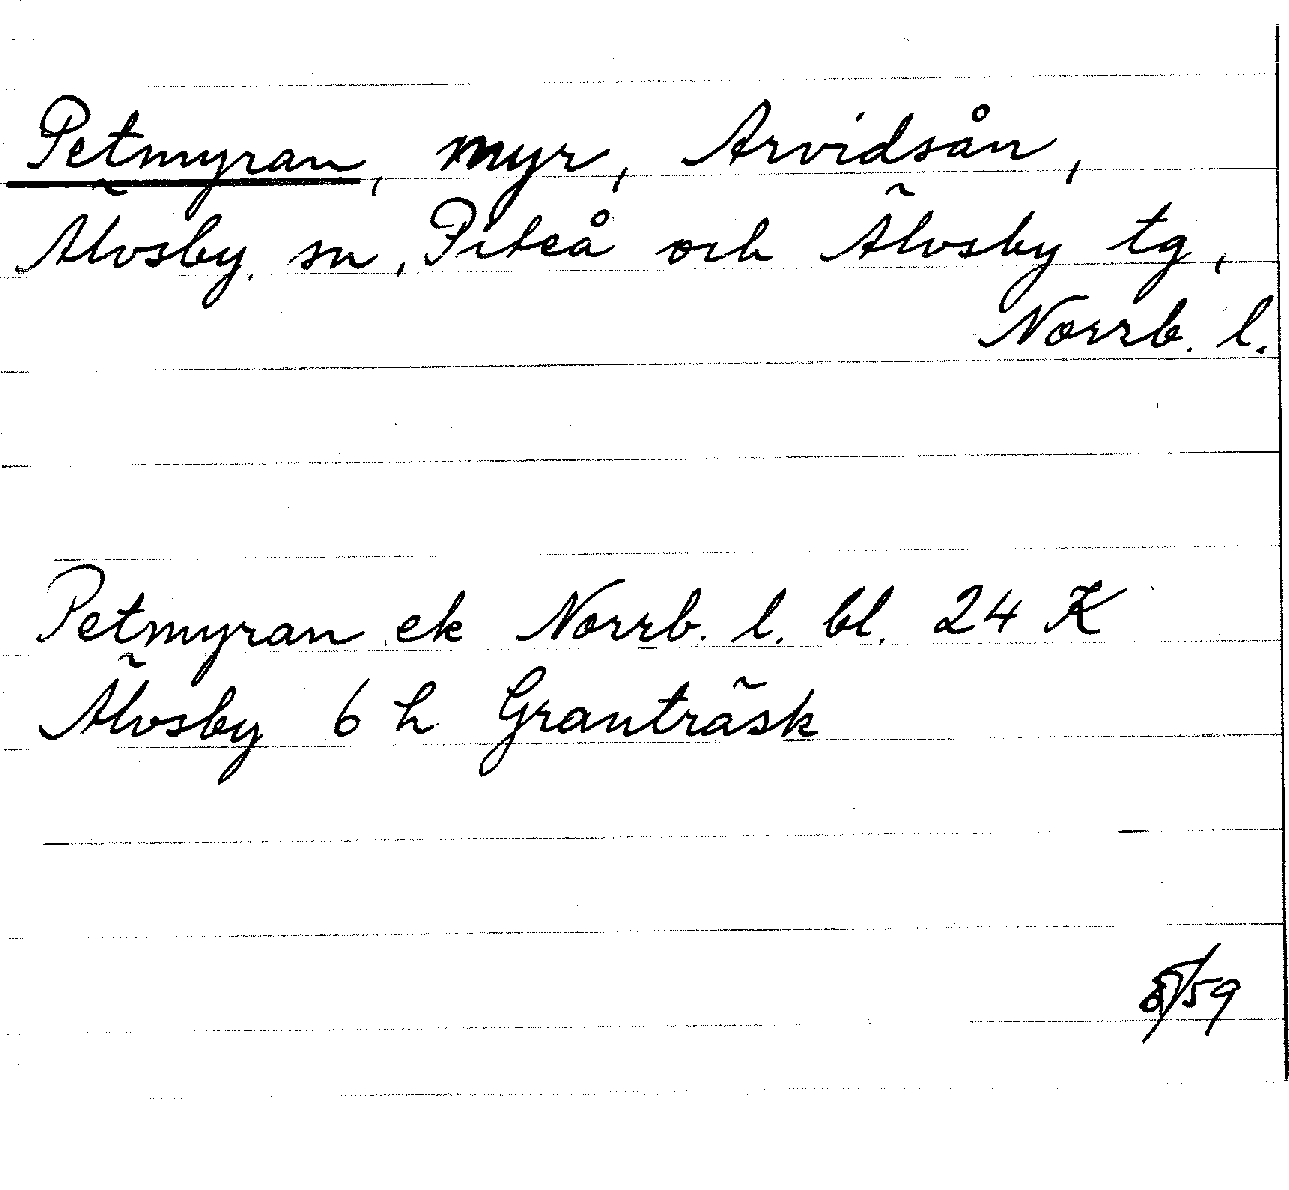 Petmyran, myr, Arvidsån,
Älvsby sn, Piteå och Älvsby tg,
Norrb. l.
Petmyran ek Norrb. l. bl. 24 K
Älvsby 6 h Granträsk